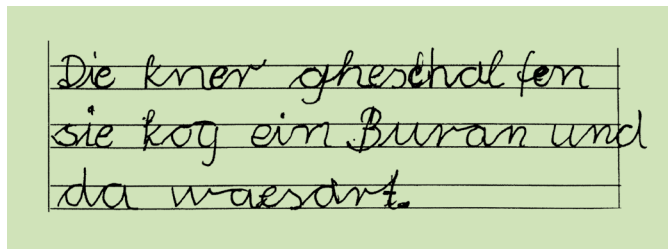 Die kner gheschal fen
sie kog ein Buran und
da waesart.